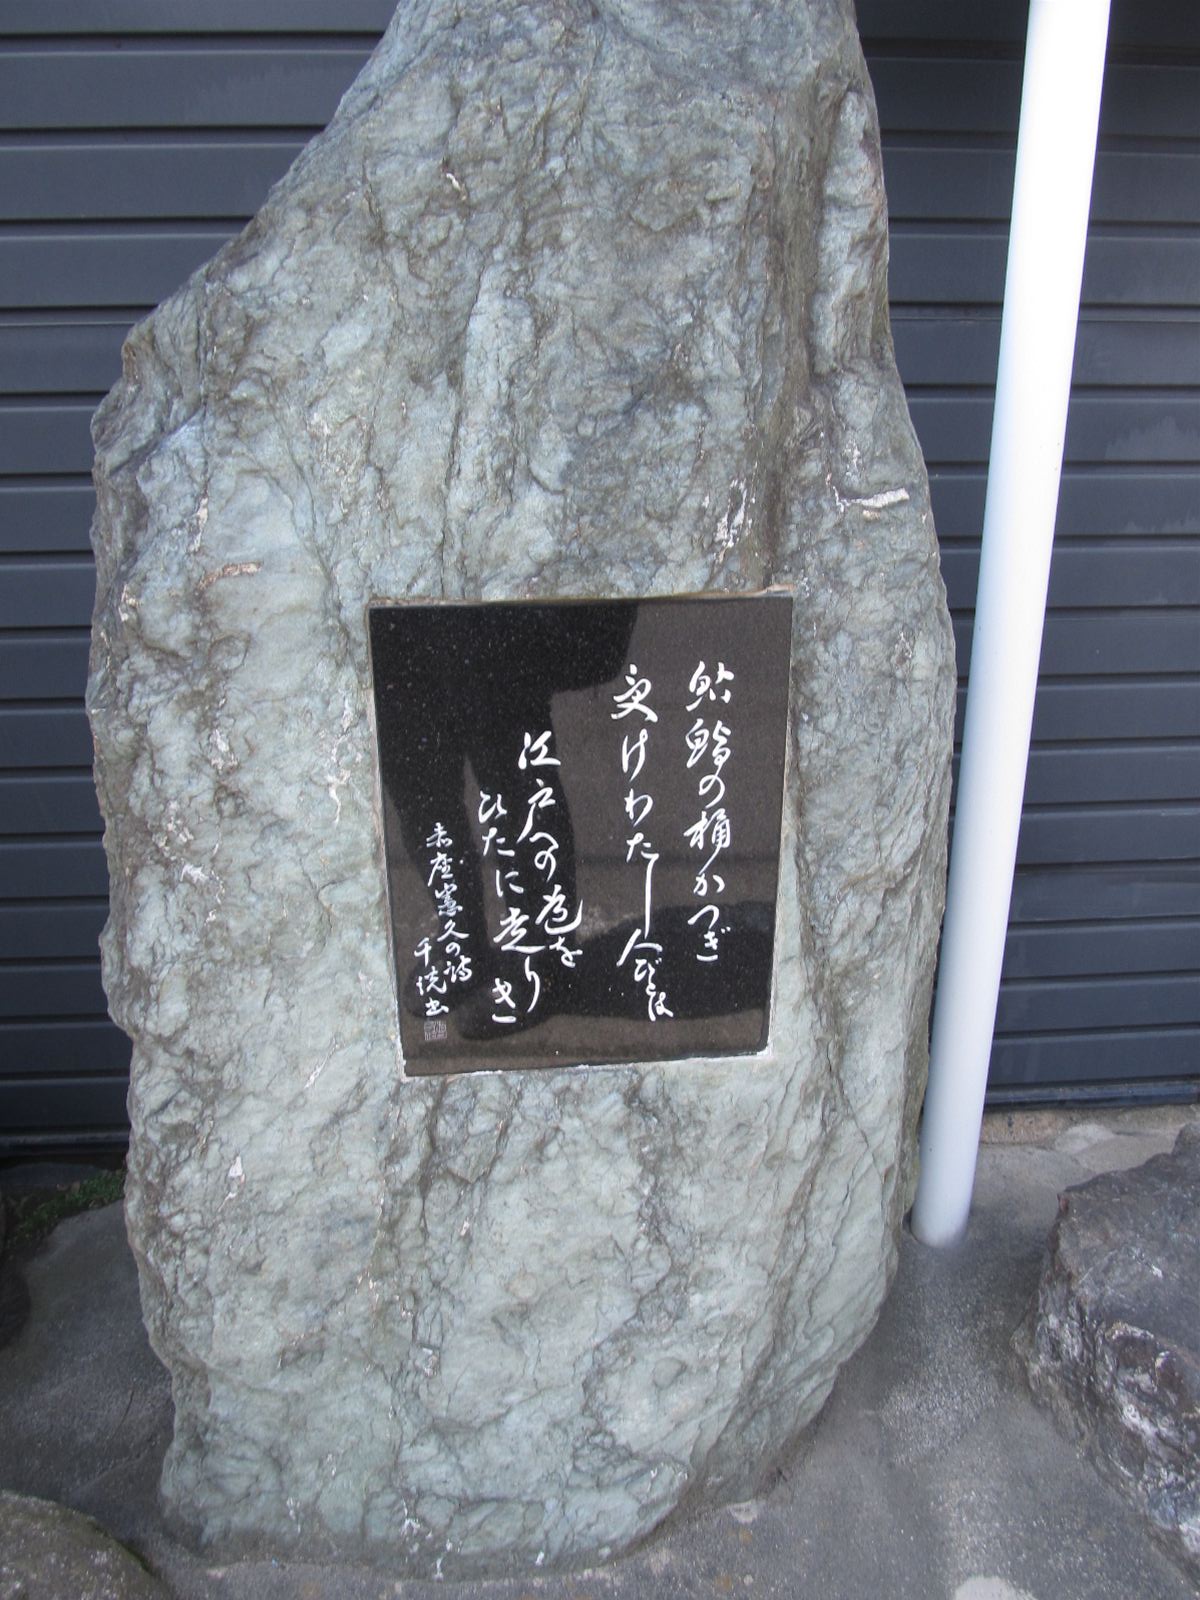 鮎鮨の桶かつぎ
受けわたし人びとは
江戸への道を
ひたに走りき
赤座憲久の詩